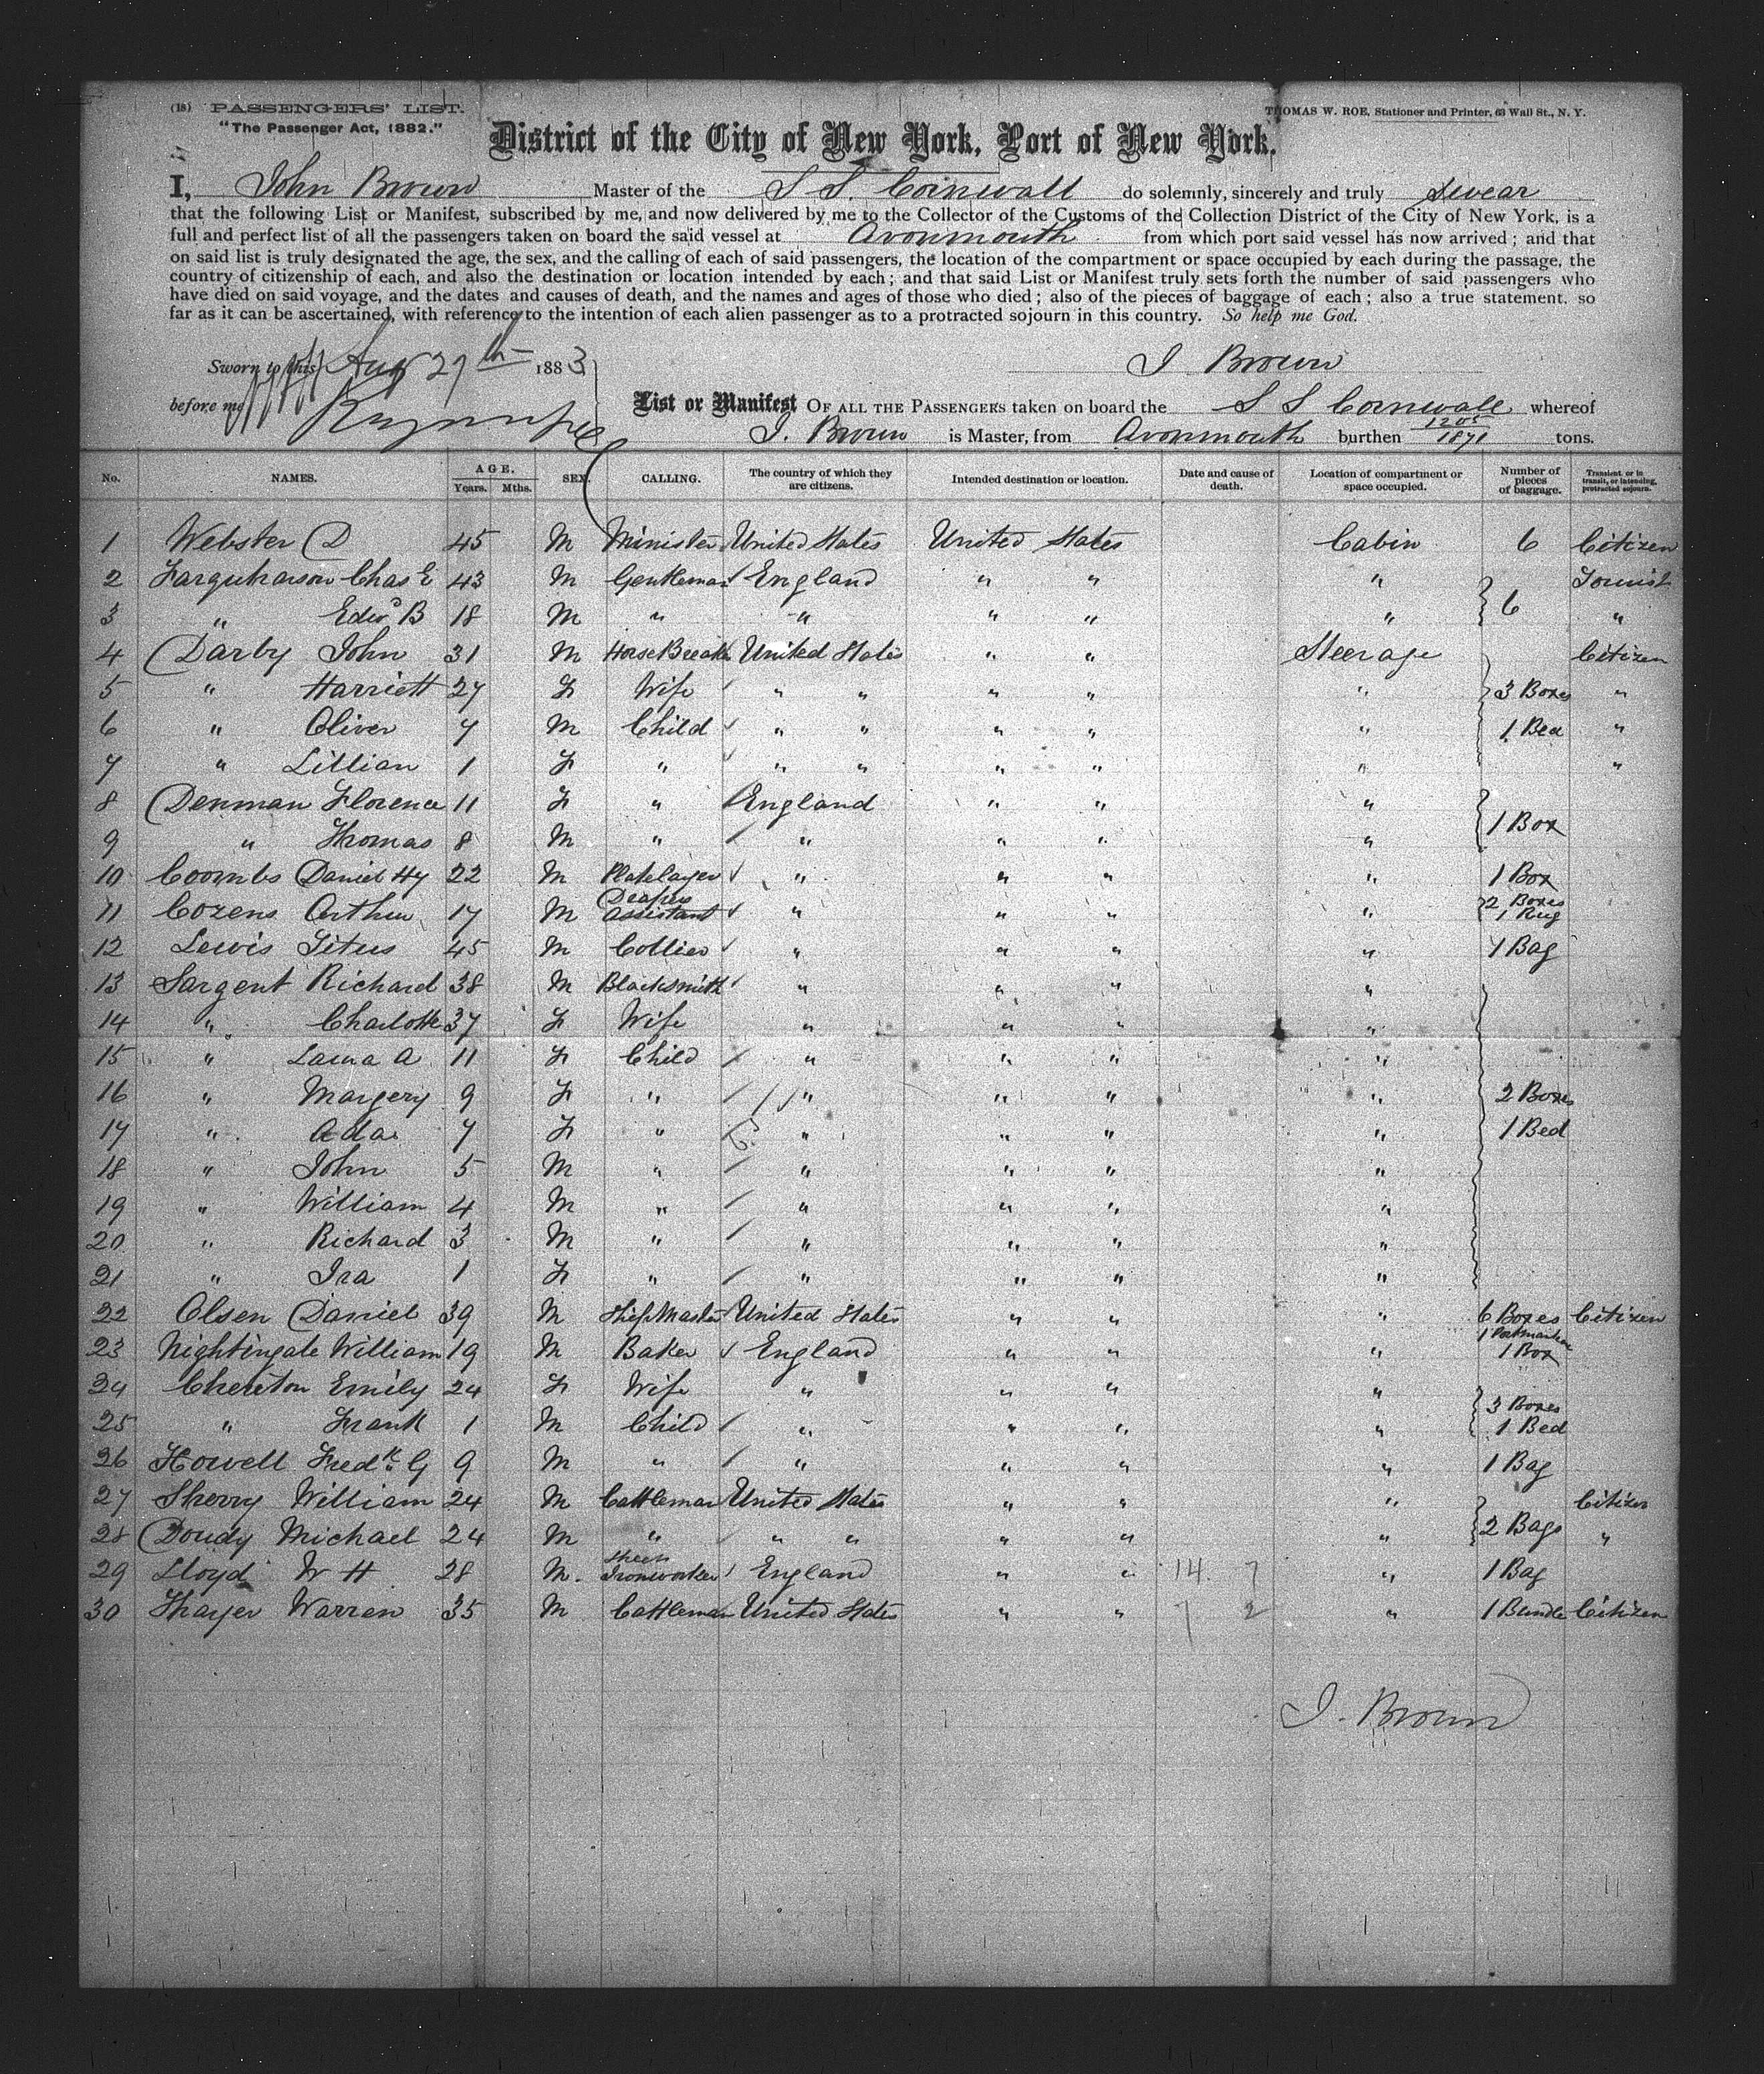 (18) PASSENGERS' LIST.
"The Passenger Act, 1882."
THOMAS W. ROE, Stationer and Printer, 63 Wall St., N. Y.
District of the City of New York, Port of New York.
I, John Brown Master of the S S. Cornwall do solemnly, sincerely and truly swear
that the following List or Manifest, subscribed by me, and now delivered by me to the Collector of the Customs of the Collection District of the City of New York, is a
full and perfect list of all the passengers taken on board the said vessel at Avonmouth from which port said vessel has now arrived; and that
on said list is truly designated the age, the sex, and the calling of each of said passengers, the location of the compartment or space occupied by each during the passage, the
country of citizenship of each, and also the destination or location intended by each; and that said List or Manifest truly sets forth the number of said passengers who
have died on said voyage, and the dates and causes of death, and the names and ages of those who died; also of the pieces of baggage of each; also a true statement, so
far as it can be ascertained, with reference to the intention of each alien passenger as to a protracted sojourn in this country. So help me God.
Sworn to this Aug 27th 1883
J Brown
before me
List or Manifest OF ALL THE PASSENGERS taken on board the S S Cornwall whereof
J. Brown is Master, from Avonmouth burthen 1205 1871 tons.
No. NAMES. AGE. Years. Mths. SEX. CALLING. The country of which they are citizens. Intended destination or location. Date and cause of death. Location of compartment or space occupied. Number of pieces of baggage. Transient, or in transit, or intending, protracted sojourn.
1 Webster D 45 M Minister United States United States Cabin 6 Citizen
2 Farquharson Chas E 43 M Gentleman England " " " Tourist
3 " Edwd B 18 M " " " " " 6 "
4 Darby John 31 M Horse Breaker United States " " Steerage Citizen
5 " Harriett 27 F Wife " " " " " 3 Boxes "
6 " Oliver 7 M Child " " " " " 1 Bed "
7 " Lillian 1 F " " " " " " "
8 Denman Florence 11 F " England " " "
9 " Thomas 8 M " " " " " 1 Box
10 Coombs Daniel Hy 22 M Platelayer " " " " 1 Box
11 Cozens Arthur 17 M Drapers Assistant " " " " 2 Boxes 1 Rug
12 Lewis Titus 45 M Collier " " " " 1 Bag
13 Sargent Richard 38 M Blacksmith " " " "
14 " Charlotte 37 F Wife " " " "
15 " Laura A 11 F Child " " " "
16 " Margery 9 F " " " " " 2 Boxes
17 " Ada 7 F " " " " " 1 Bed
18 " John 5 M " " " " "
19 " William 4 M " " " " "
20 " Richard 3 M " " " " "
21 " Ira 1 F " " " " "
22 Olsen Daniel 39 M Ship Master United States " " " 6 Boxes Citizen
23 Nightingale William 19 M Baker England " " " 1 Box
24 Chereton Emily 24 F Wife " " " "
25 " Frank 1 M Child " " " " 3 Boxes 1 Bed
26 Howell Fredk G 9 M " " " " " 1 Bag
27 Sherry William 24 M Cattleman United States " " " Citizen
28 Doudy Michael 24 M " " " " " " 2 Bags "
29 Lloyd W H 28 M. Sheet Ironworker England " " 14. 7 " 1 Bag
30 Thayer Warren 35 M Cattleman United States " " 7 2 " 1 Bundle Citizen
J. Brown